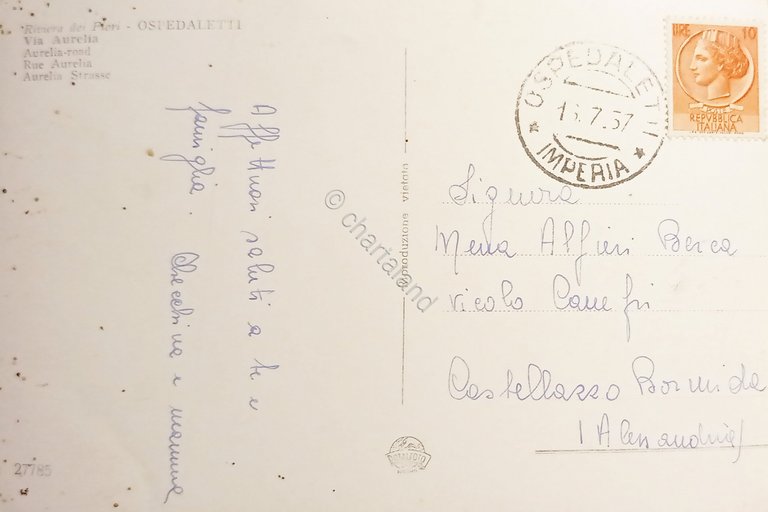 Riviera dei Fiori - OSPEDALETTI
Via Aurelia
Aurelia-road
Rue Aurelia
Aurelia Strasse
Affettuosi saluti a te e
famiglia. Checchina e mamma
27785
riproduzione vietata
© chartaland
OSPEDALETTI
13.7.57
IMPERIA
LIRE 10
POSTE
REPVBBLICA
ITALIANA
Signora
Mena Alfieri Berca
Vicolo Canefri
Castellazzo Bormida
(Alessandria)